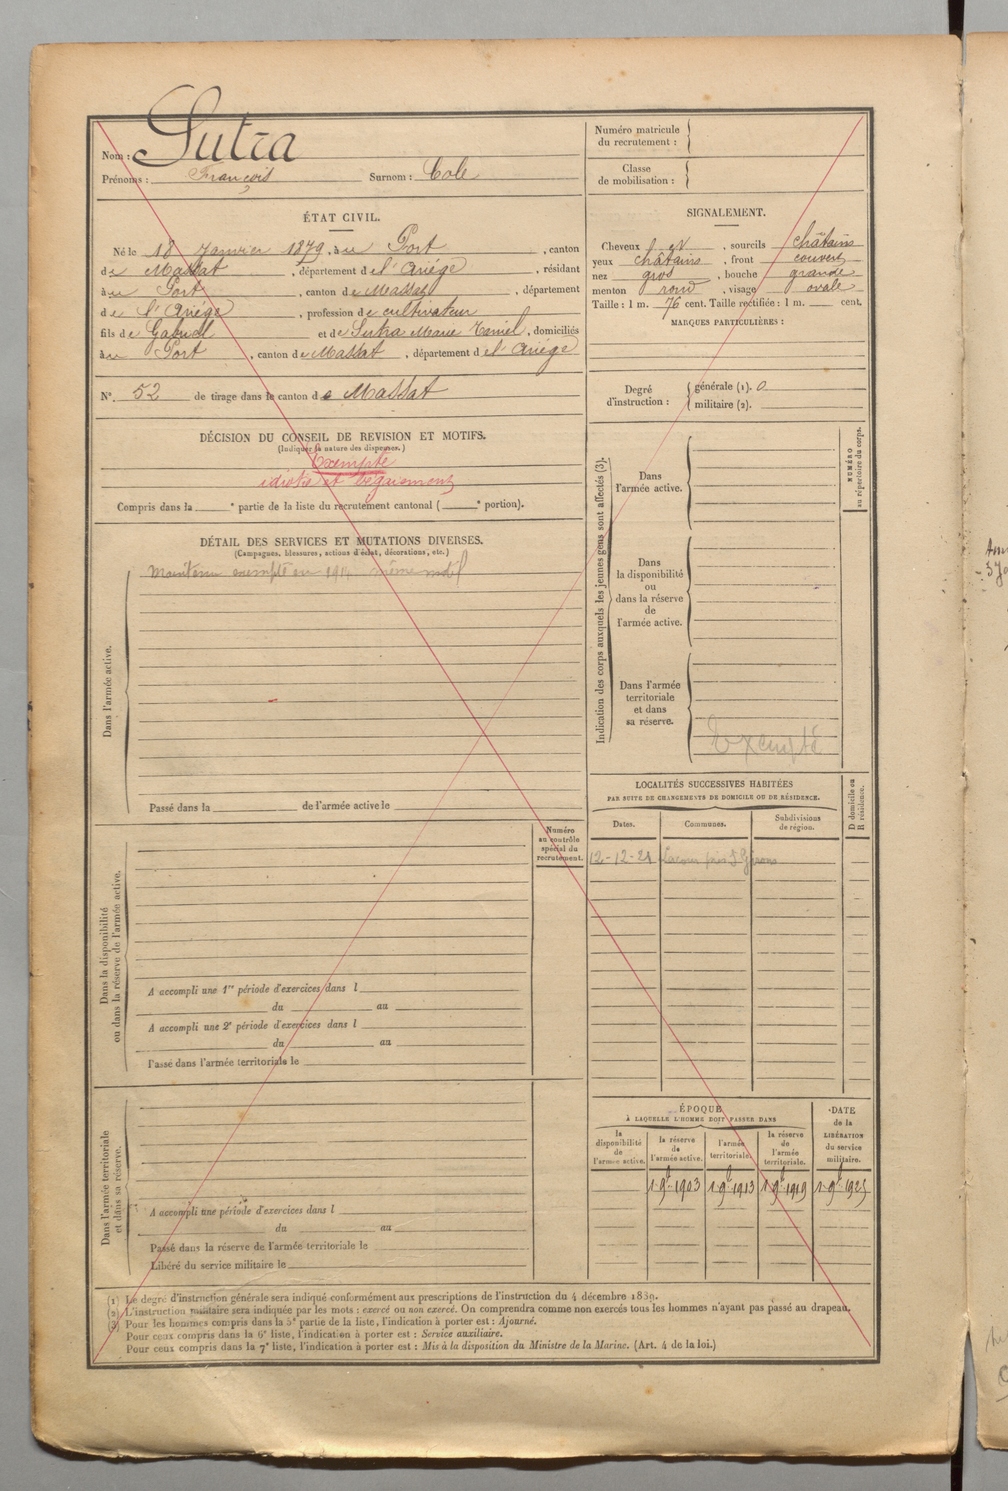 Nom : Sutra
Prénoms : François Surnom : Cole
ÉTAT CIVIL.
Né le 18 Janvier 1879, à au Port, canton
de Massat, département de l'Ariége, résidant
à au Port, canton de Massat, département
de l'Ariége, profession de cultivateur
fils de Gabriel et de Sutra Marie, domiciliés
à au Port, canton de Massat, département de l'Ariége
N°. 52 de tirage dans le canton de Massat
DÉCISION DU CONSEIL DE REVISION ET MOTIFS.
(Indiquer la nature des dispenses.)
Exempté
idiotie et bégaiement
Compris dans la e partie de la liste du recrutement cantonal ( e portion).
DÉTAIL DES SERVICES ET MUTATIONS DIVERSES.
(Campagnes, blessures, actions d'éclat, décorations, etc.)
Maintenu exempté en 1914 même motif
Dans l'armée active.
Passé dans la de l'armée active le
Numéro
au contrôle
spécial du
recrutement.
Dans la disponibilité
ou dans la réserve de l'armée active.
A accompli une 1re période d'exercices dans l
du au
A accompli une 2e période d'exercices dans l
du au
Passé dans l'armée territoriale le
Dans l'armée territoriale
et dans sa réserve.
A accompli une période d'exercices dans l
du au
Passé dans la réserve de l'armée territoriale le
Libéré du service militaire le
Numéro matricule
du recrutement :
Classe
de mobilisation :
SIGNALEMENT.
Cheveux et, sourcils châtains
yeux châtains, front couvert
nez gros, bouche grande
menton rond, visage ovale
Taille : 1 m. 76 cent. Taille rectifiée : 1 m. cent.
MARQUES PARTICULIÈRES :
Degré
d'instruction :
générale (1). 0
militaire (2).
Indication des corps auxquels les jeunes gens sont affectés (3).
NUMÉRO
au répertoire du corps.
Dans
l'armée active.
Dans
la disponibilité
ou
dans la réserve
de
l'armée active.
Dans l'armée
territoriale
et dans
sa réserve.
Exempté
LOCALITÉS SUCCESSIVES HABITÉES
PAR SUITE DE CHANGEMENTS DE DOMICILE OU DE RÉSIDENCE.
Dates. Communes. Subdivisions
de région.
D domicile ou
R résidence.
12-12-21 Lacour près St Girons
ÉPOQUE
À LAQUELLE L'HOMME DOIT PASSER DANS
la
disponibilité
de
l'armée active.
la réserve
de
l'armée active.
l'armée
territoriale.
la réserve
de
l'armée
territoriale.
DATE
de la
LIBÉRATION
du service
militaire.
1 9bre 1903 1 9bre 1913 1 9bre 1919 1 9bre 1925
(1) Le degré d'instruction générale sera indiqué conformément aux prescriptions de l'instruction du 4 décembre 1889.
(2) L'instruction militaire sera indiquée par les mots : exercé ou non exercé. On comprendra comme non exercés tous les hommes n'ayant pas passé au drapeau.
(3) Pour les hommes compris dans la 5e partie de la liste, l'indication à porter est : Ajourné.
Pour ceux compris dans la 6e liste, l'indication à porter est : Service auxiliaire.
Pour ceux compris dans la 7e liste, l'indication à porter est : Mis à la disposition du Ministre de la Marine. (Art. 4 de la loi.)